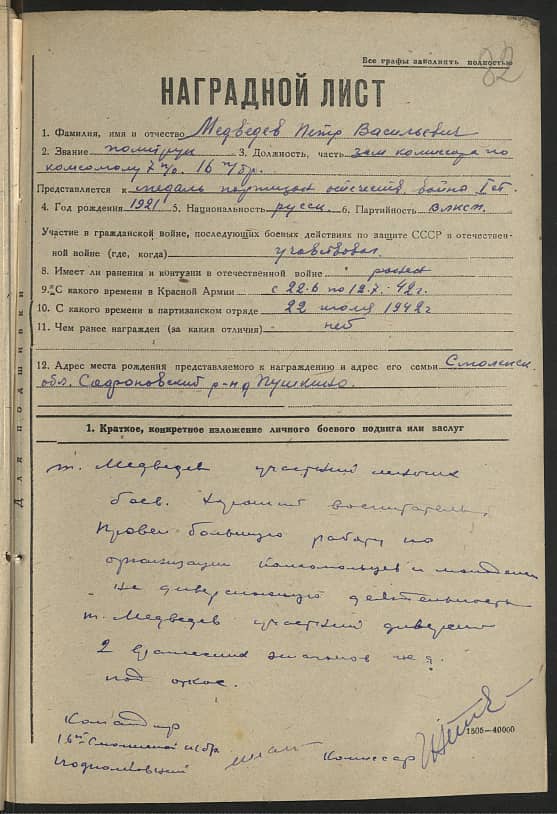 Все графы заполнять полностью
82
НАГРАДНОЙ ЛИСТ
1. Фамилия, имя и отчество Медведев Петр Васильевич
2. Звание политрук 3. Должность, часть зам комиссара по
комсомолу 7 п/о. 16 п/бр.
Представляется к медаль партизан отечеств. войны I ст.
4. Год рождения 1921 5. Национальность русск. 6. Партийность влксм.
Участие в гражданской войне, последующих боевых действиях по защите СССР в отечествен-
ной войне (где, когда) участвовал
8. Имеет ли ранения и контузии в отечественной войне ранен
9. С какого времени в Красной Армии с 22.6 по 12.7. 42г.
10. С какого времени в партизанском отряде 22 июля 1942г
11. Чем ранее награжден (за какия отличия) нет
12. Адрес места рождения представляемого к награждению и адрес его семьи Смоленск.
обл. Сафоновский р-н д Пушкино.
1. Краткое, конкретное изложение личного боевого подвига или заслуг
Для подшивки
т. Медведев участник многих
боев. Хороший воспитатель.
Провел большую работу по
организации комсомольцев и молодежи
на диверсионную деятельность
т. Медведев участник диверсии
2 вражеских эшелонов
под откос.
Командир
16й Смоленской п/бр
Комиссар
1505—40000